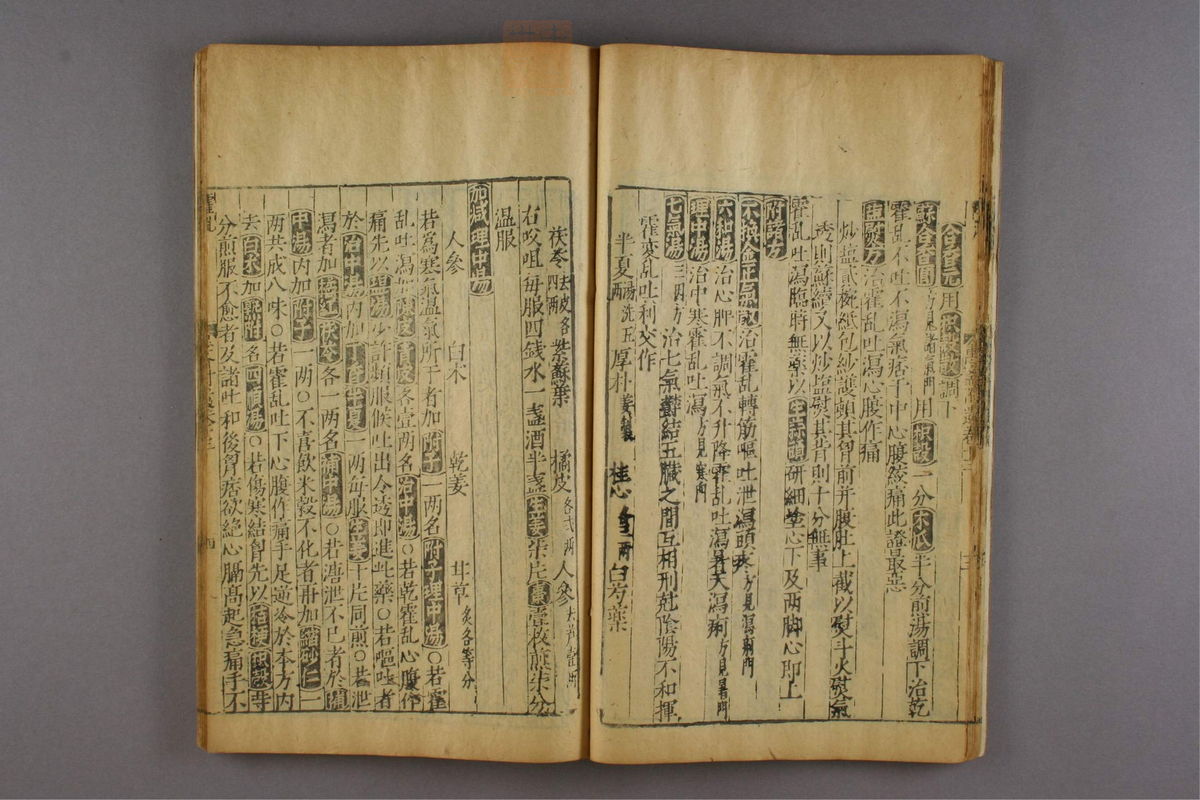 用枳殼散調下
蘇合香圓方見諸氣門用枳殼一分木瓜半分煎湯調下治乾
霍乱不吐不瀉氣痞于中心腹絞痛此證最惡
鹽熨方治霍乱吐瀉心腹作痛
炒塩貳椀紙包紗護頓其胷前并腹肚上截以熨斗火熨氣
透則甦續又以炒塩熨其背則十分無事
霍乱吐瀉臨時無藥以生蒜硯研細塗心下及两脚心即上
附諸方
不換金正氣散治霍乱轉筋嘔吐泄瀉頭疼方見瀉痢門
六和湯治心脾不調氣不升降霍乱吐瀉暑天瀉痢方見暑門
理中湯治中寒霍乱吐瀉方見寒門
七氣湯三四方治七氣鬱結五臟之間互相刑尅陰陽不和揮
霍変乱吐利交作
半夏湯洗五两厚朴姜製桂心各两白芍薬
茯苓去皮各四两紫蘇葉橘皮各弍两人參
右㕮咀每服四錢水一盞酒半盞生姜柒片棗壹枚煎柒分
温服
加減理中湯
人參白术乾姜甘草炙各等分
若爲寒氣温氣所干者加附子一两名附子理中湯○若霍
乱吐瀉加陳皮青皮各壹两名治中湯○若乾霍乱心腹作
痛先以塩湯少許頻服候吐出令透即進此藥○若嘔吐者
於治中湯内加丁香半夏一两每服生姜十片同煎○若泄
瀉者加橘紅茯苓各一两名補中湯○若溏泄不已者於補
中湯内加附子一两○不喜飲米穀不化者再加縮砂仁一
两共成八味○若霍乱吐下心腹作痛手足逆冷於本方内
去白术加熟附名四順湯○若傷寒結胷先以桔梗枳殼等
分煎服不愈者及諸吐和後胷痞欲絶心膈高起急痛手不